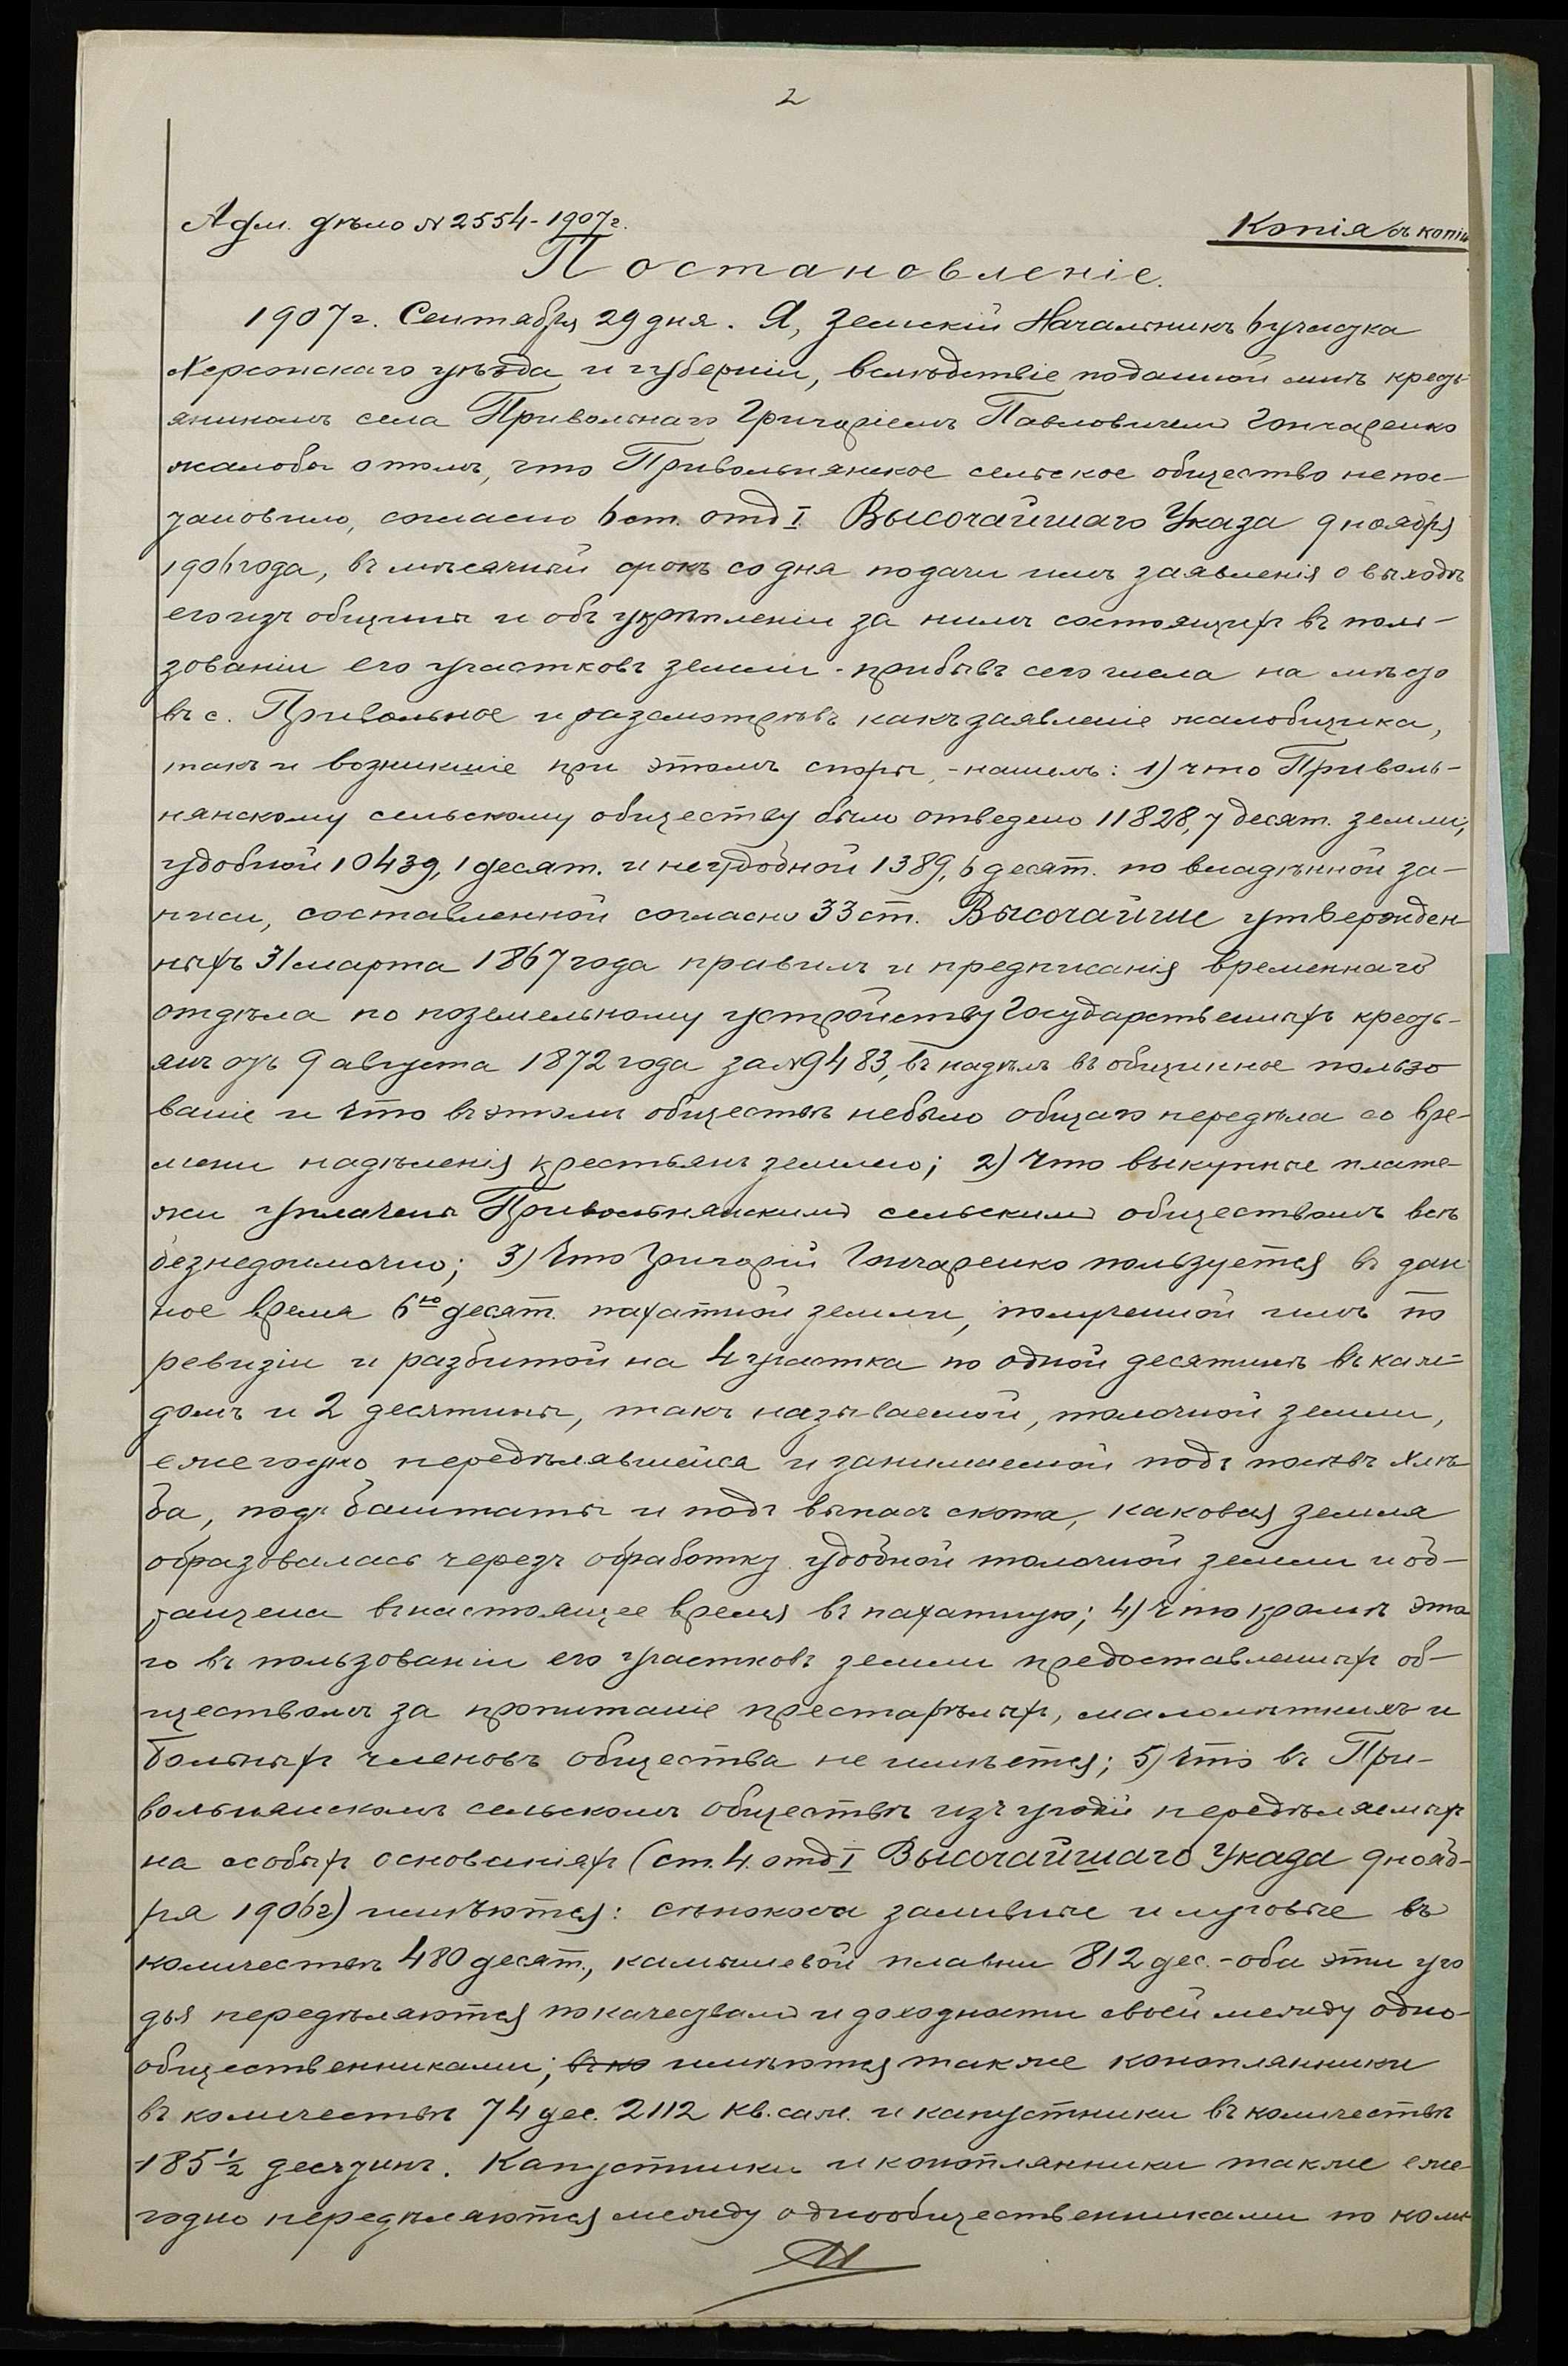 2
Адм. дѣло № 2554-1907 г.
Копія съ копіи
Постановленіе.
1907 г. Сентября 29 дня. Я, Земскій Начальникъ 6 участка
Херсонскаго уѣзда и губерніи, вслѣдствіе поданной мнѣ кресть-
яниномъ села Привольнаго Григоріемъ Павловичемъ Гончаренко
жалобы о томъ, что Привольнянское сельское общество не пос-
тановило, согласно 6 ст. отд I Высочайшаго Указа 9 ноября
1906 года, въ мѣсячный срокъ со дня подачи имъ заявленія о выходѣ
его изъ общины и объ укрѣпленіи за нимъ состоящихъ въ поль-
зованіи его участковъ земли - прибывъ сего числа на мѣсто
въ с. Привольное и разсмотрѣвъ какъ заявленіе жалобщика,
такъ и возникшіе при этомъ споры, - нашелъ: 1) что Приволь-
нянскому сельскому обществу было отведено 11828,7 десят. земли,
удобной 10439,1 десят. и неудобной 1389,6 десят. по владѣнной за-
писи, составленной согласно 33 ст. Высочайше утвержден-
ныхъ 31 марта 1867 года правилъ и предписанія временнаго
отдѣла по поземельному устройству Государственныхъ кресть-
янъ отъ 9 августа 1872 года за № 9483, въ надѣлъ въ общинное пользо
ваніе и что въ этомъ обществѣ не было общаго передѣла со вре-
мени надѣленія крестьянъ землею; 2) что выкупные плате-
жи уплачены Привольнянскимъ сельскимъ обществомъ всѣ
безнедоимочно; 3) что Григорій Гончаренко пользуется въ дан
ное время 6ю десят. пахатной земли, полученной имъ по
ревизіи и разбитой на 4 участка по одной десятинѣ въ каж-
домъ и 2 десятины, такъ называемой, толочной земли,
ежегодно передѣлявшейся и занимаемой подъ посѣвъ хлѣ-
ба, подъ баштаны и подъ выпасъ скота, каковая земля
образовалась черезъ обработку удобной толочной земли и об-
ращена въ настоящее время въ пахатную; 4) что кромѣ это
го въ пользованіи его участковъ земли предоставленныхъ об-
ществомъ за пропитаніе престарѣлыхъ, малолѣтнихъ и
больныхъ членовъ общества не имѣется; 5) что въ При-
вольнянскомъ сельскомъ обществѣ изъ угодій передѣляемыхъ
на особыхъ основаніяхъ (ст. 4. отд I Высочайшаго Указа 9 нояб-
ря 1906 г) имѣются: сѣнокоса заливные и луговые въ
количествѣ 480 десят., камышевой плавни 812 дес. - оба эти уго
дья передѣляются по качествамъ и доходности своей между одно-
общественниками; въ ко имѣются также коноплянники
въ количествѣ 74 дес. 2112 кв. саж. и капустники въ количествѣ
185 ½ десятинъ. Капустники и коноплянники также еже-
годно передѣляются между однообщественниками по коли